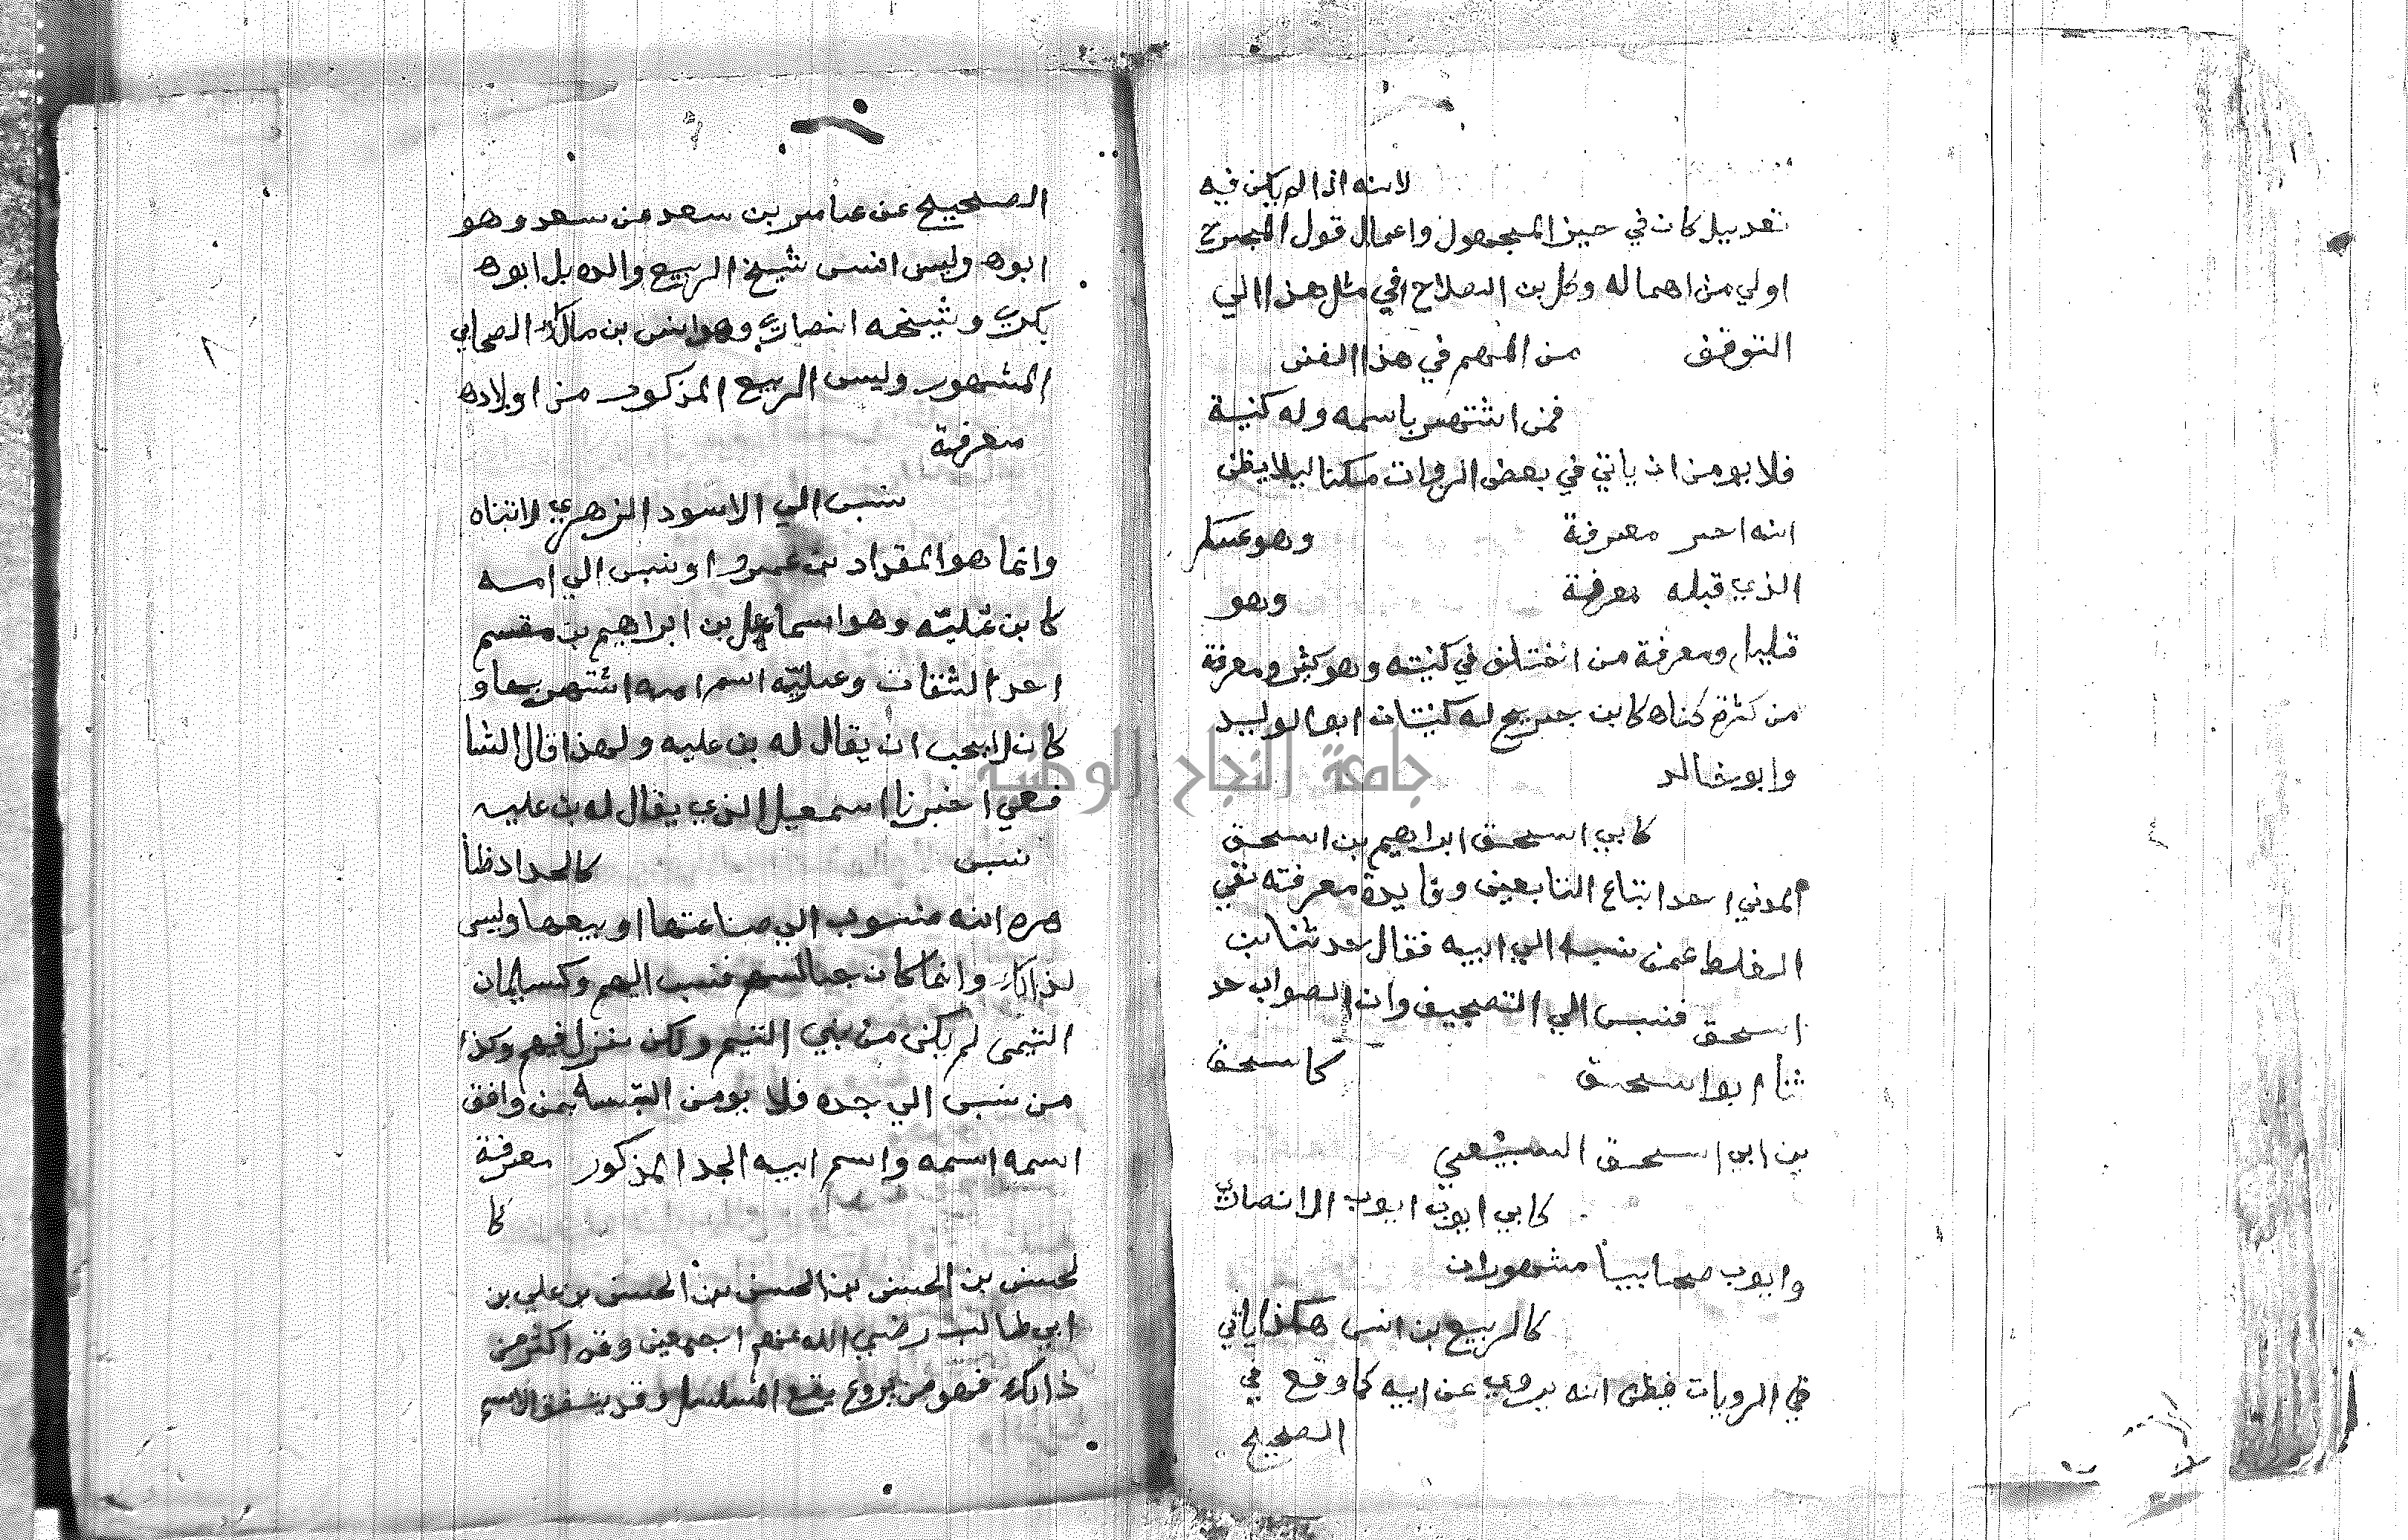 لانه اذا لم يكن فيه
تعديل كان في حيز المجهول واعمال قول المجرح
اولي من اهماله وكل بن الصلاح في مثل هذا الي
التوقف من المهم في هذا الفن
فمن اشتهر باسمه وله كنية
فلا يومن ان ياتي في بعض الروات مكنا ليلا يظن
انه اخر معرفة وهو عكس
الذي قبله معرفة وهو
قليل ومعرفة من اختلف في كنيته وهو كثير ومعرفة
من كثرة كناه كابن جريج له كنيتان ابو الوليد
وابو خالد
كابي اسحق ابراهيم بن اسحق
المدني احد اتباع التابعين وفايدة معرفته نفي
الغلط عمن نسبه الي ابيه فقال حدثنا بن
اسحق فنسب الي التصحيف وان الصواب حد
ثنا ابو اسحق كاسحق
بن ابي اسحق السبيعي
كابي ايوب ايوب الانصاري
وايوب صحابيا مشهوران
كالربيع بن انس هكذا ياتي
في الرويات فيظن انه يروي عن ابيه كما وقع في
الصحيح
الصحيح عن عامر بن سعد من سعد وهو
ابوه وليس انس شيخ الربيع والده بل ابوه
بكري وشيخه انصاري وهو انس بن مالك الصحابي
المشهور وليس الربيع المذكور من اولاده
معرفة
نسب الي الاسود الزهري لاتبناه
وانما هو المقداد بن عمرو او نسب الي امه
كابن عليّه وهو اسماعيل بن ابراهيم بن مقسم
احد الثقات وعليّه اسم امه اشتهر بها و
كان لا يحب ان يقال له بن عليه ولهذا قال الشا
فعي اخبرنا اسمعيل الذي يقال له بن عليه
نسب كالحداد ظا
هره انه منسوب الي صناعتها او بيعها وليس
لذالك وانما كان جالسهم فنسب اليهم وكسليمان
التيمى لم يكن من بني التيم ولكن نزل فيهم وكذا
من نسب الي جده فلا يومن التبسه بمن وافق
اسمه اسمه واسم ابيه الجد المذكور معرفة
كا
لحسن بن الحسن بن الحسن بن الحسن بن علي بن
ابي طالب رضي الله عنهم اجمعين وقد اكثر من
ذالك فهو من فروع يقع المسلسل وقد يتفق الاسم
جامعة النجاح الوطنية